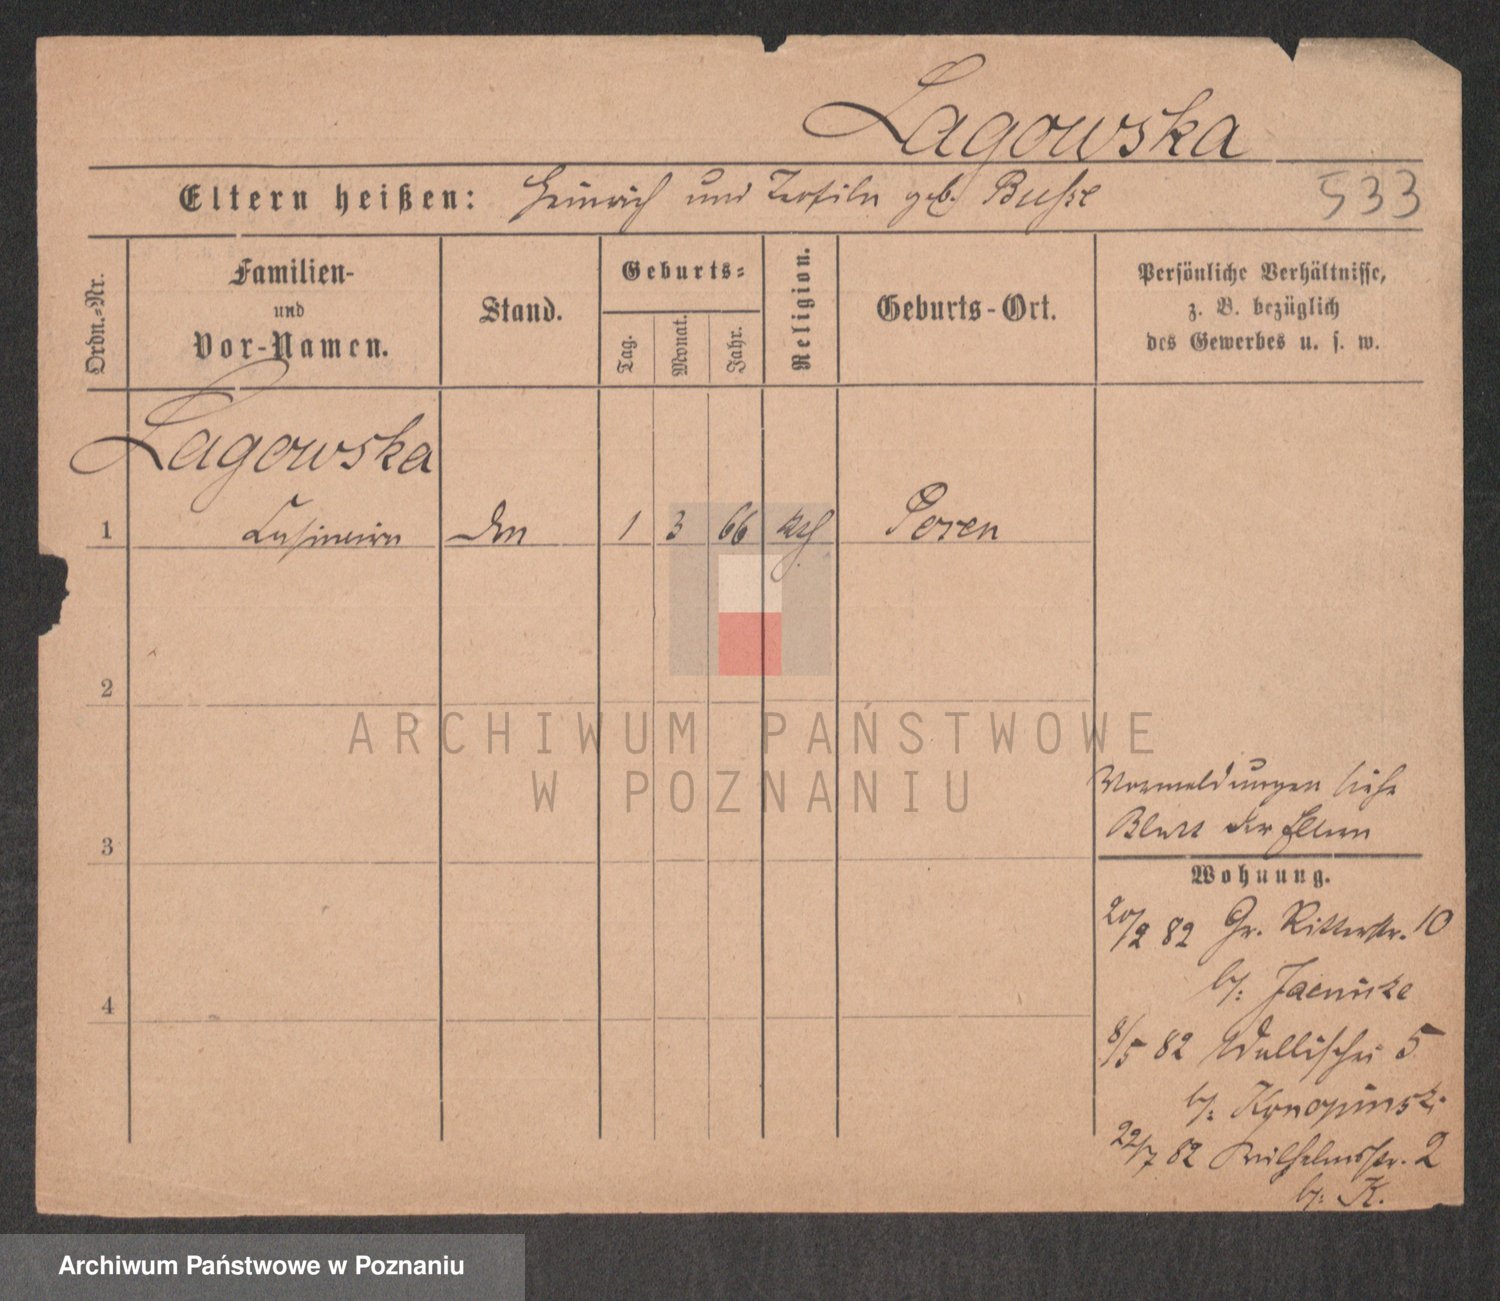 Lagowska
Eltern heißen: Heinrich und Teofila geb. Busse
533
Ordn.-Nr.
Familien-
und
Vor-Namen.
Stand.
Geburts-
Tag.
Monat.
Jahr.
Religion.
Geburts-Ort.
Persönliche Verhältnisse,
z. B. bezüglich
des Gewerbes u. s. w.
Lagowska
1 Casimira 1 3 66 kth Posen
2
ARCHIWUM PAŃSTWOWE
W POZNANIU
Vormeldungen siehe
Blatt der Eltern
3
Wohnung.
20/2 82 Gr. Ritterstr. 10
b/: Jaenicke
4
8/5 82 Wallischei 5
b/: Konopinski
22/7 82 Wilhelmsstr. 2
b/: K.
Archiwum Państwowe w Poznaniu